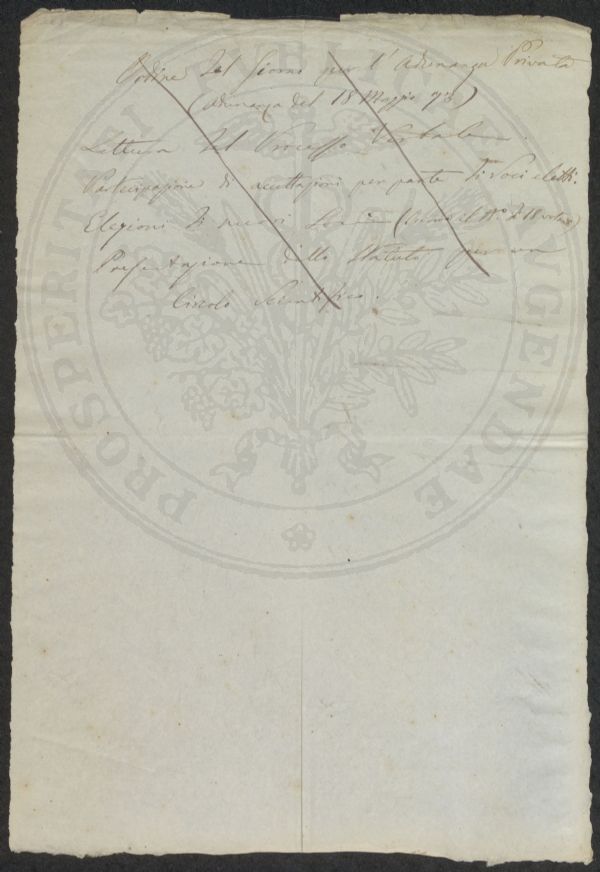 Ordine del Giorno per l'Adunanza Privata
(Adunanza del 18 Maggio 73)
Lettura del Processo Verbale
Partecipazione di accettazioni per parte di Soci eletti.
Elezioni di nuovi Soci
Presentazione dello Statuto per un
Circolo Scientifico.
PROSPERITATI AUGENDAE